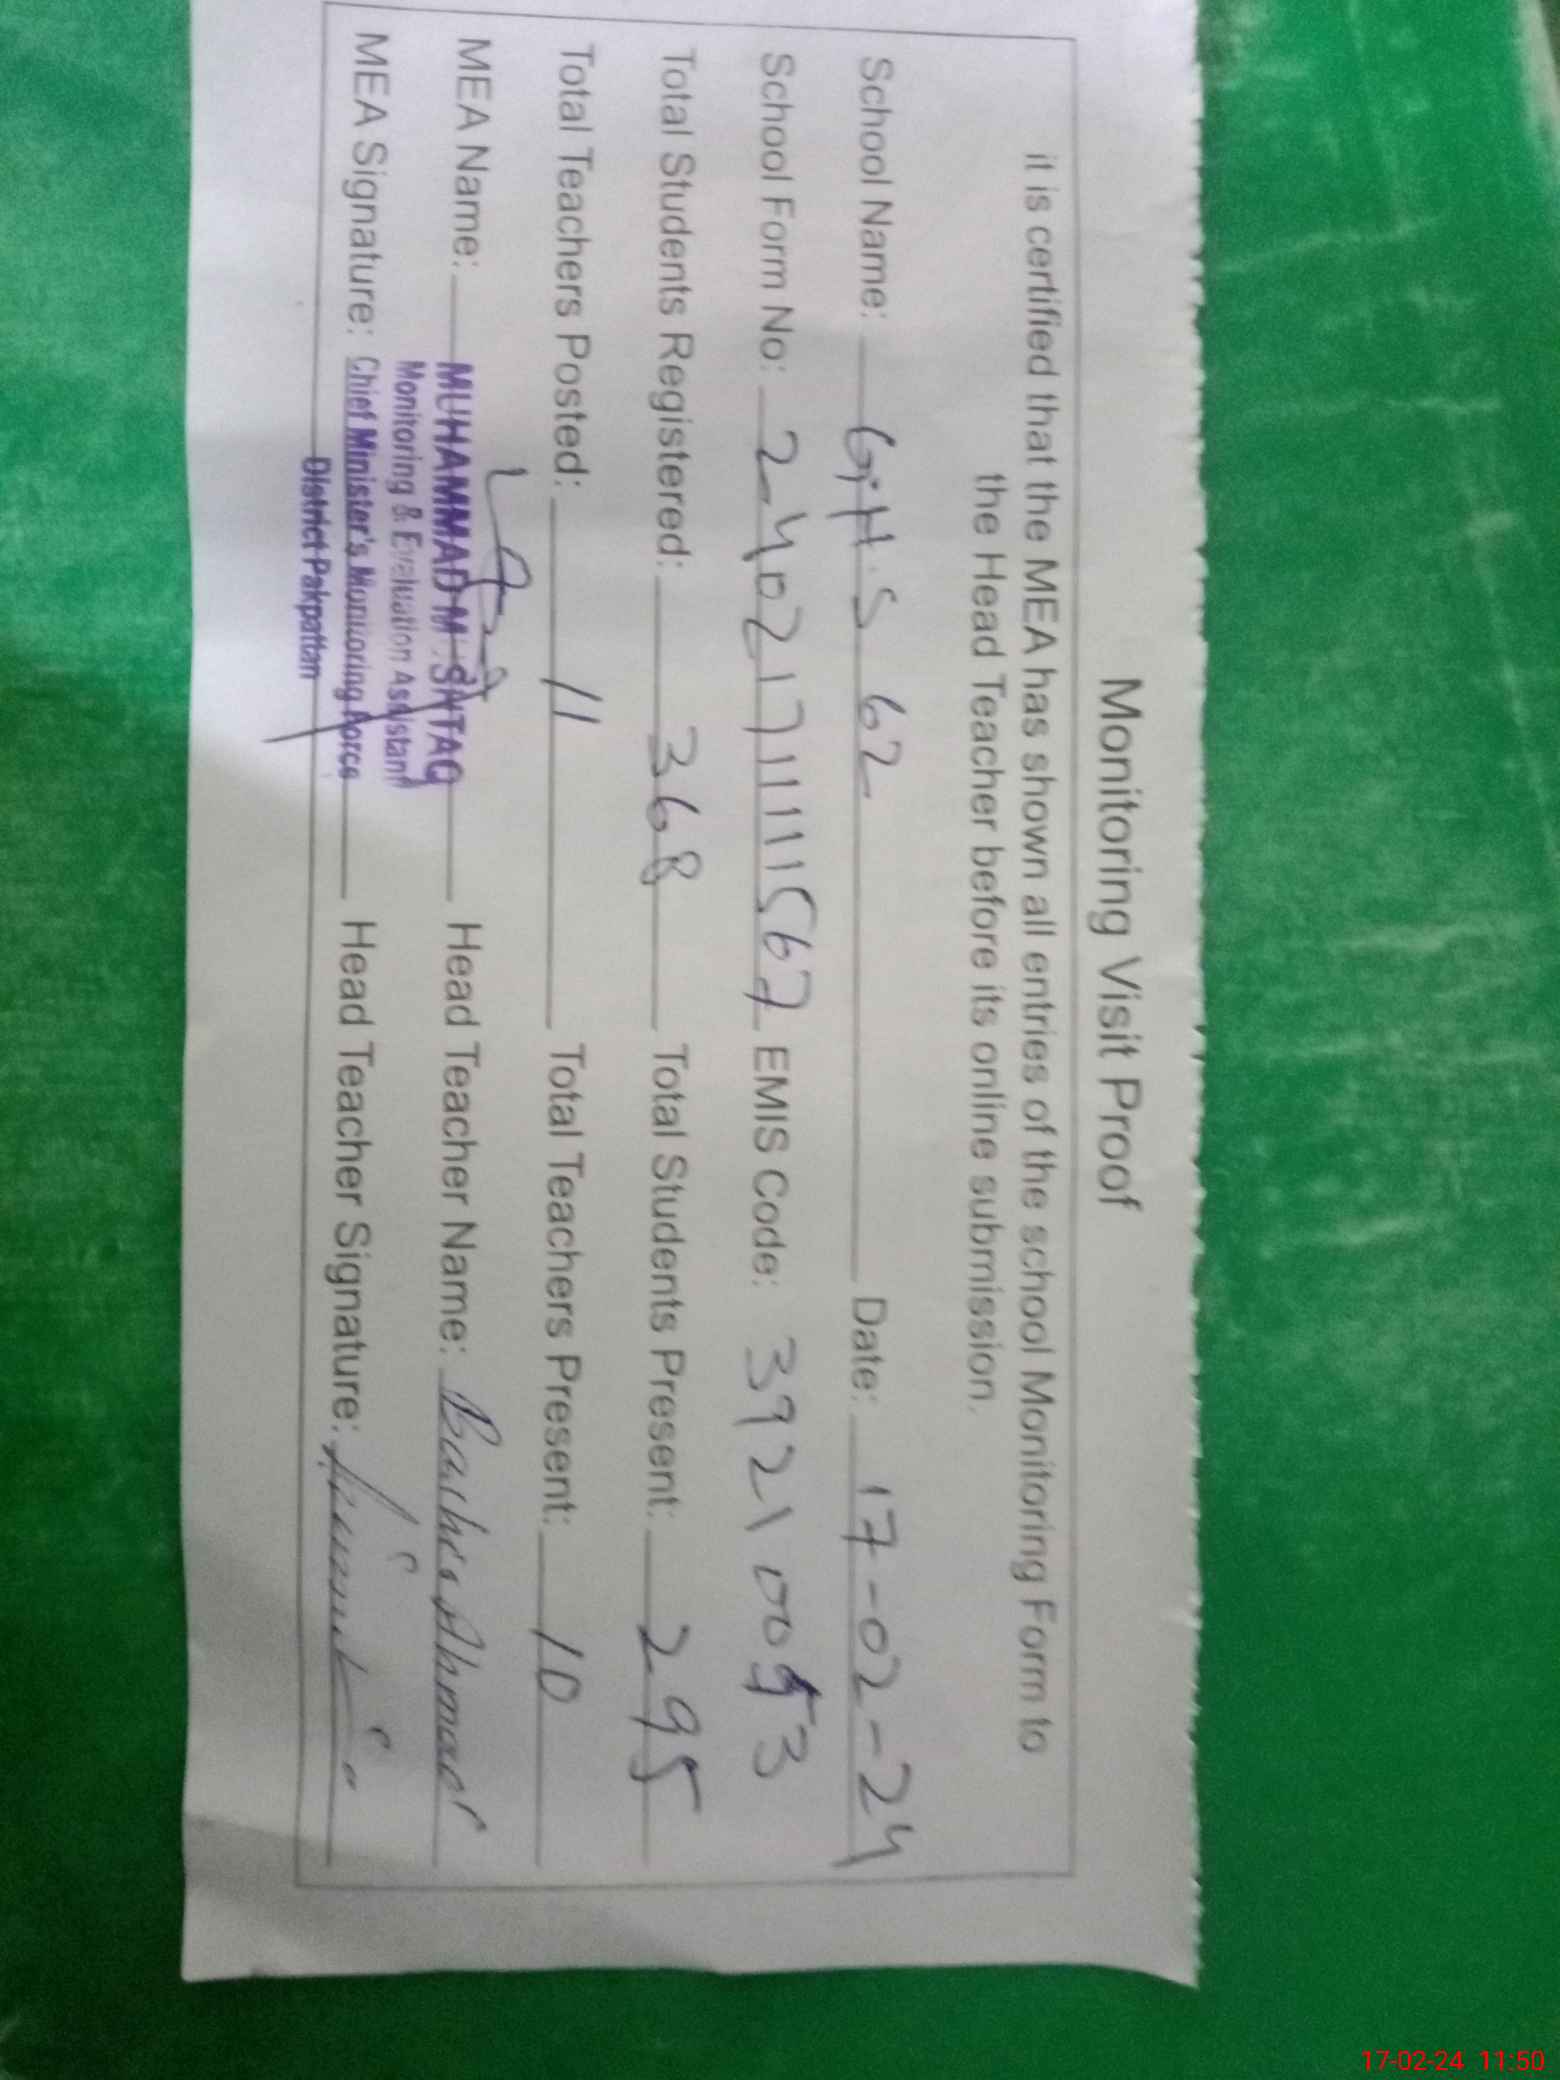 Monitoring Visit Proof
it is certified that the MEA has shown all entries of the school Monitoring Form to
the Head Teacher before its online submission.
School Name: G.H.S 62 Date: 17-02-24
School Form No: 2402171111567 EMIS Code: 39210053
Total Students Registered: 368 Total Students Present: 295
Total Teachers Posted: 11 Total Teachers Present: 10
MEA Name: MUHAMMAD MUSHTAQ Head Teacher Name: Bashir Ahmad
Monitoring & Evaluation Assistant
MEA Signature: Chief Minister's Monitoring Force Head Teacher Signature:
District Pakpattan
17-02-24 11:50